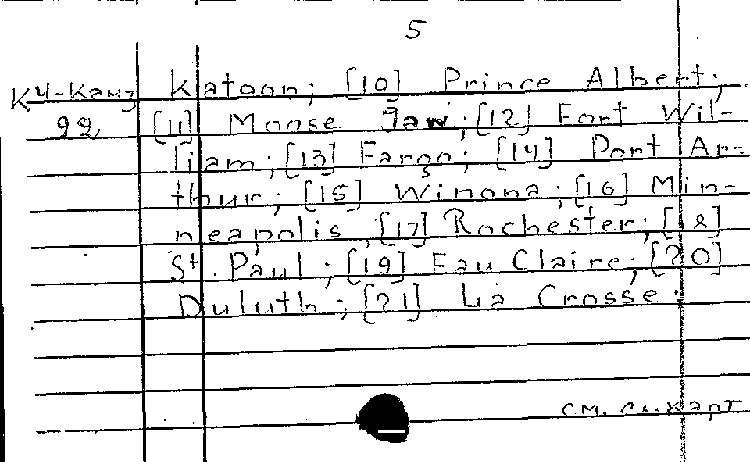 5
К4-Канз katoon; [10] Prince Albert;
92 [11] Moose Jaw; [12] Fort Wil-
liam; [13] Fargo; [14] Port Ar-
thur; [15] Winona; [16] Min-
neapolis; [17] Rochester; [18]
St. Paul; [19] Eau Claire; [20]
Duluth; [21] La Crosse.
см. сл. карт